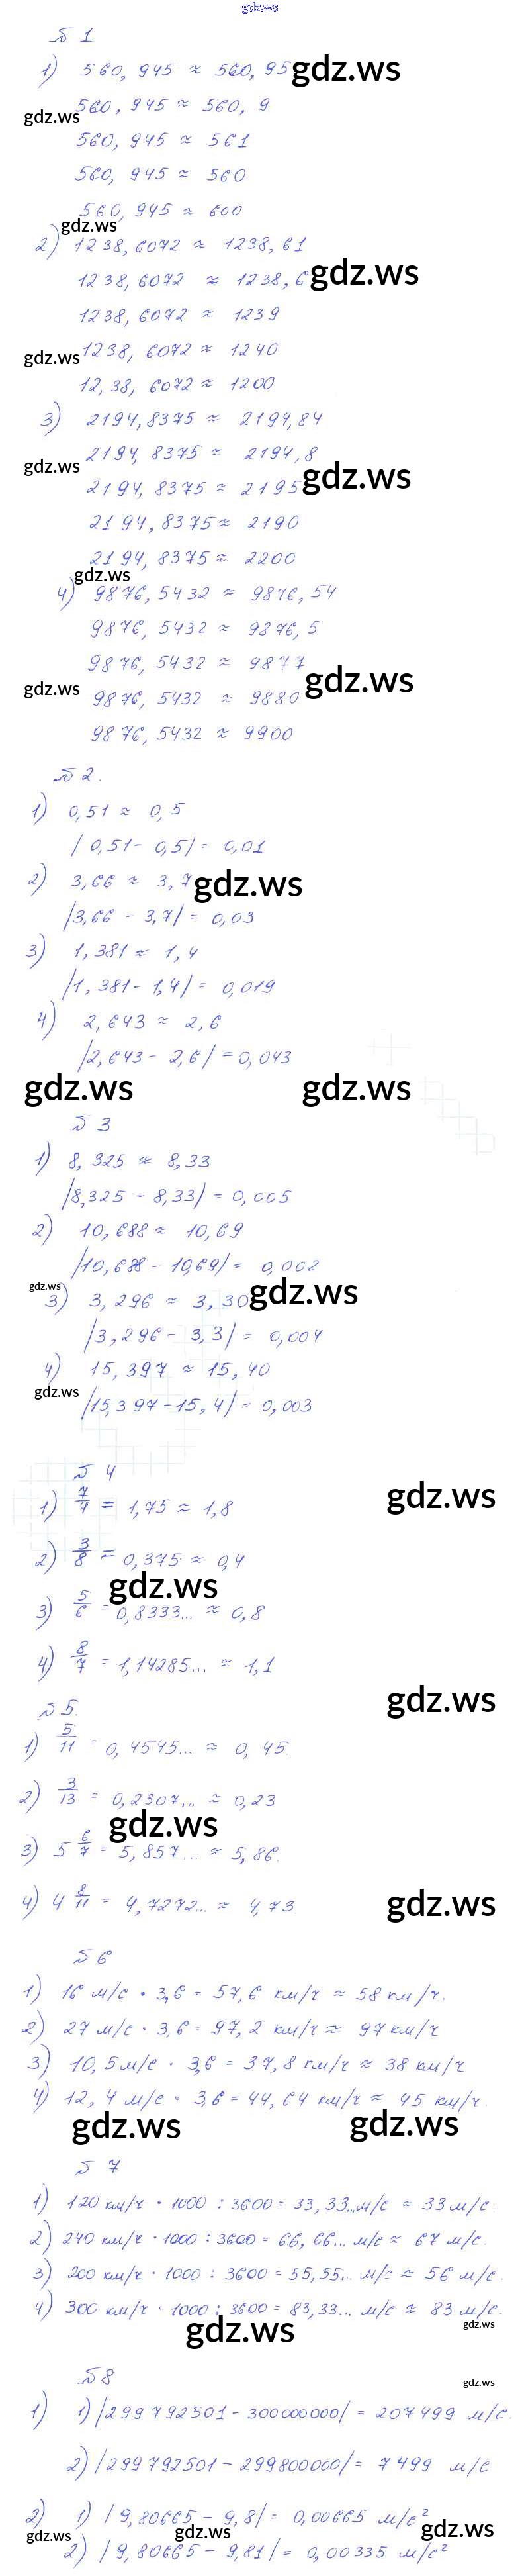 gdz.ws
№ 1
1) 560,945 ≈ 560,95 gdz.ws
560,945 ≈ 560,9
gdz.ws
560,945 ≈ 561
560,945 ≈ 560
560,945 ≈ 600
gdz.ws
2) 1238,6072 ≈ 1238,61
1238,6072 ≈ 1238,6 gdz.ws
1238,6072 ≈ 1239
gdz.ws 1238,6072 ≈ 1240
12,38,6072 ≈ 1200
3) 2194,8375 ≈ 2194,84
gdz.ws 2194,8375 ≈ 2194,8
2194,8375 ≈ 2195 gdz.ws
2194,8375 ≈ 2190
2194,8375 ≈ 2200
gdz.ws
4) 9876,5432 ≈ 9876,54
9876,5432 ≈ 9876,5
9876,5432 ≈ 9877 gdz.ws
gdz.ws 9876,5432 ≈ 9880
9876,5432 ≈ 9900
№ 2.
1) 0,51 ≈ 0,5
|0,51 - 0,5| = 0,01
2) 3,66 ≈ 3,7 gdz.ws
|3,66 - 3,7| = 0,03
3) 1,381 ≈ 1,4
|1,381 - 1,4| = 0,019
4) 2,643 ≈ 2,6
|2,643 - 2,6| = 0,043
gdz.ws gdz.ws
№ 3
1) 8,325 ≈ 8,33
|8,325 - 8,33| = 0,005
2) 10,688 ≈ 10,69
|10,688 - 10,69| = 0,002
gdz.ws
3) 3,296 ≈ 3,30 gdz.ws
|3,296 - 3,3| = 0,004
4) 15,397 ≈ 15,40
gdz.ws
|15,397 - 15,4| = 0,003
№ 4
1) 7/4 = 1,75 ≈ 1,8 gdz.ws
2) 3/8 = 0,375 ≈ 0,4
gdz.ws
3) 5/6 = 0,8333... ≈ 0,8
4) 8/7 = 1,14285... ≈ 1,1
gdz.ws
№ 5.
1) 5/11 = 0,4545... ≈ 0,45.
2) 3/13 = 0,2307... ≈ 0,23
gdz.ws
3) 5 6/7 = 5,857... ≈ 5,86.
4) 4 8/11 = 4,7272... ≈ 4,73. gdz.ws
№ 6
1) 16 м/с · 3,6 = 57,6 км/ч ≈ 58 км/ч.
2) 27 м/с · 3,6 = 97,2 км/ч ≈ 97 км/ч
3) 10,5 м/с · 3,6 = 37,8 км/ч ≈ 38 км/ч
4) 12,4 м/с · 3,6 = 44,64 км/ч ≈ 45 км/ч.
gdz.ws gdz.ws
№ 7
1) 120 км/ч · 1000 : 3600 = 33,33... м/с ≈ 33 м/с.
2) 240 км/ч · 1000 : 3600 = 66,66... м/с ≈ 67 м/с.
3) 200 км/ч · 1000 : 3600 = 55,55... м/с ≈ 56 м/с.
4) 300 км/ч · 1000 : 3600 = 83,33... м/с ≈ 83 м/с.
gdz.ws gdz.ws
№ 8
gdz.ws
1) 1) |299792501 - 300000000| = 207499 м/с.
2) |299792501 - 299800000| = 7499 м/с
2) 1) |9,80665 - 9,8| = 0,00665 м/с²
gdz.ws gdz.ws gdz.ws
2) |9,80665 - 9,81| = 0,00335 м/с²